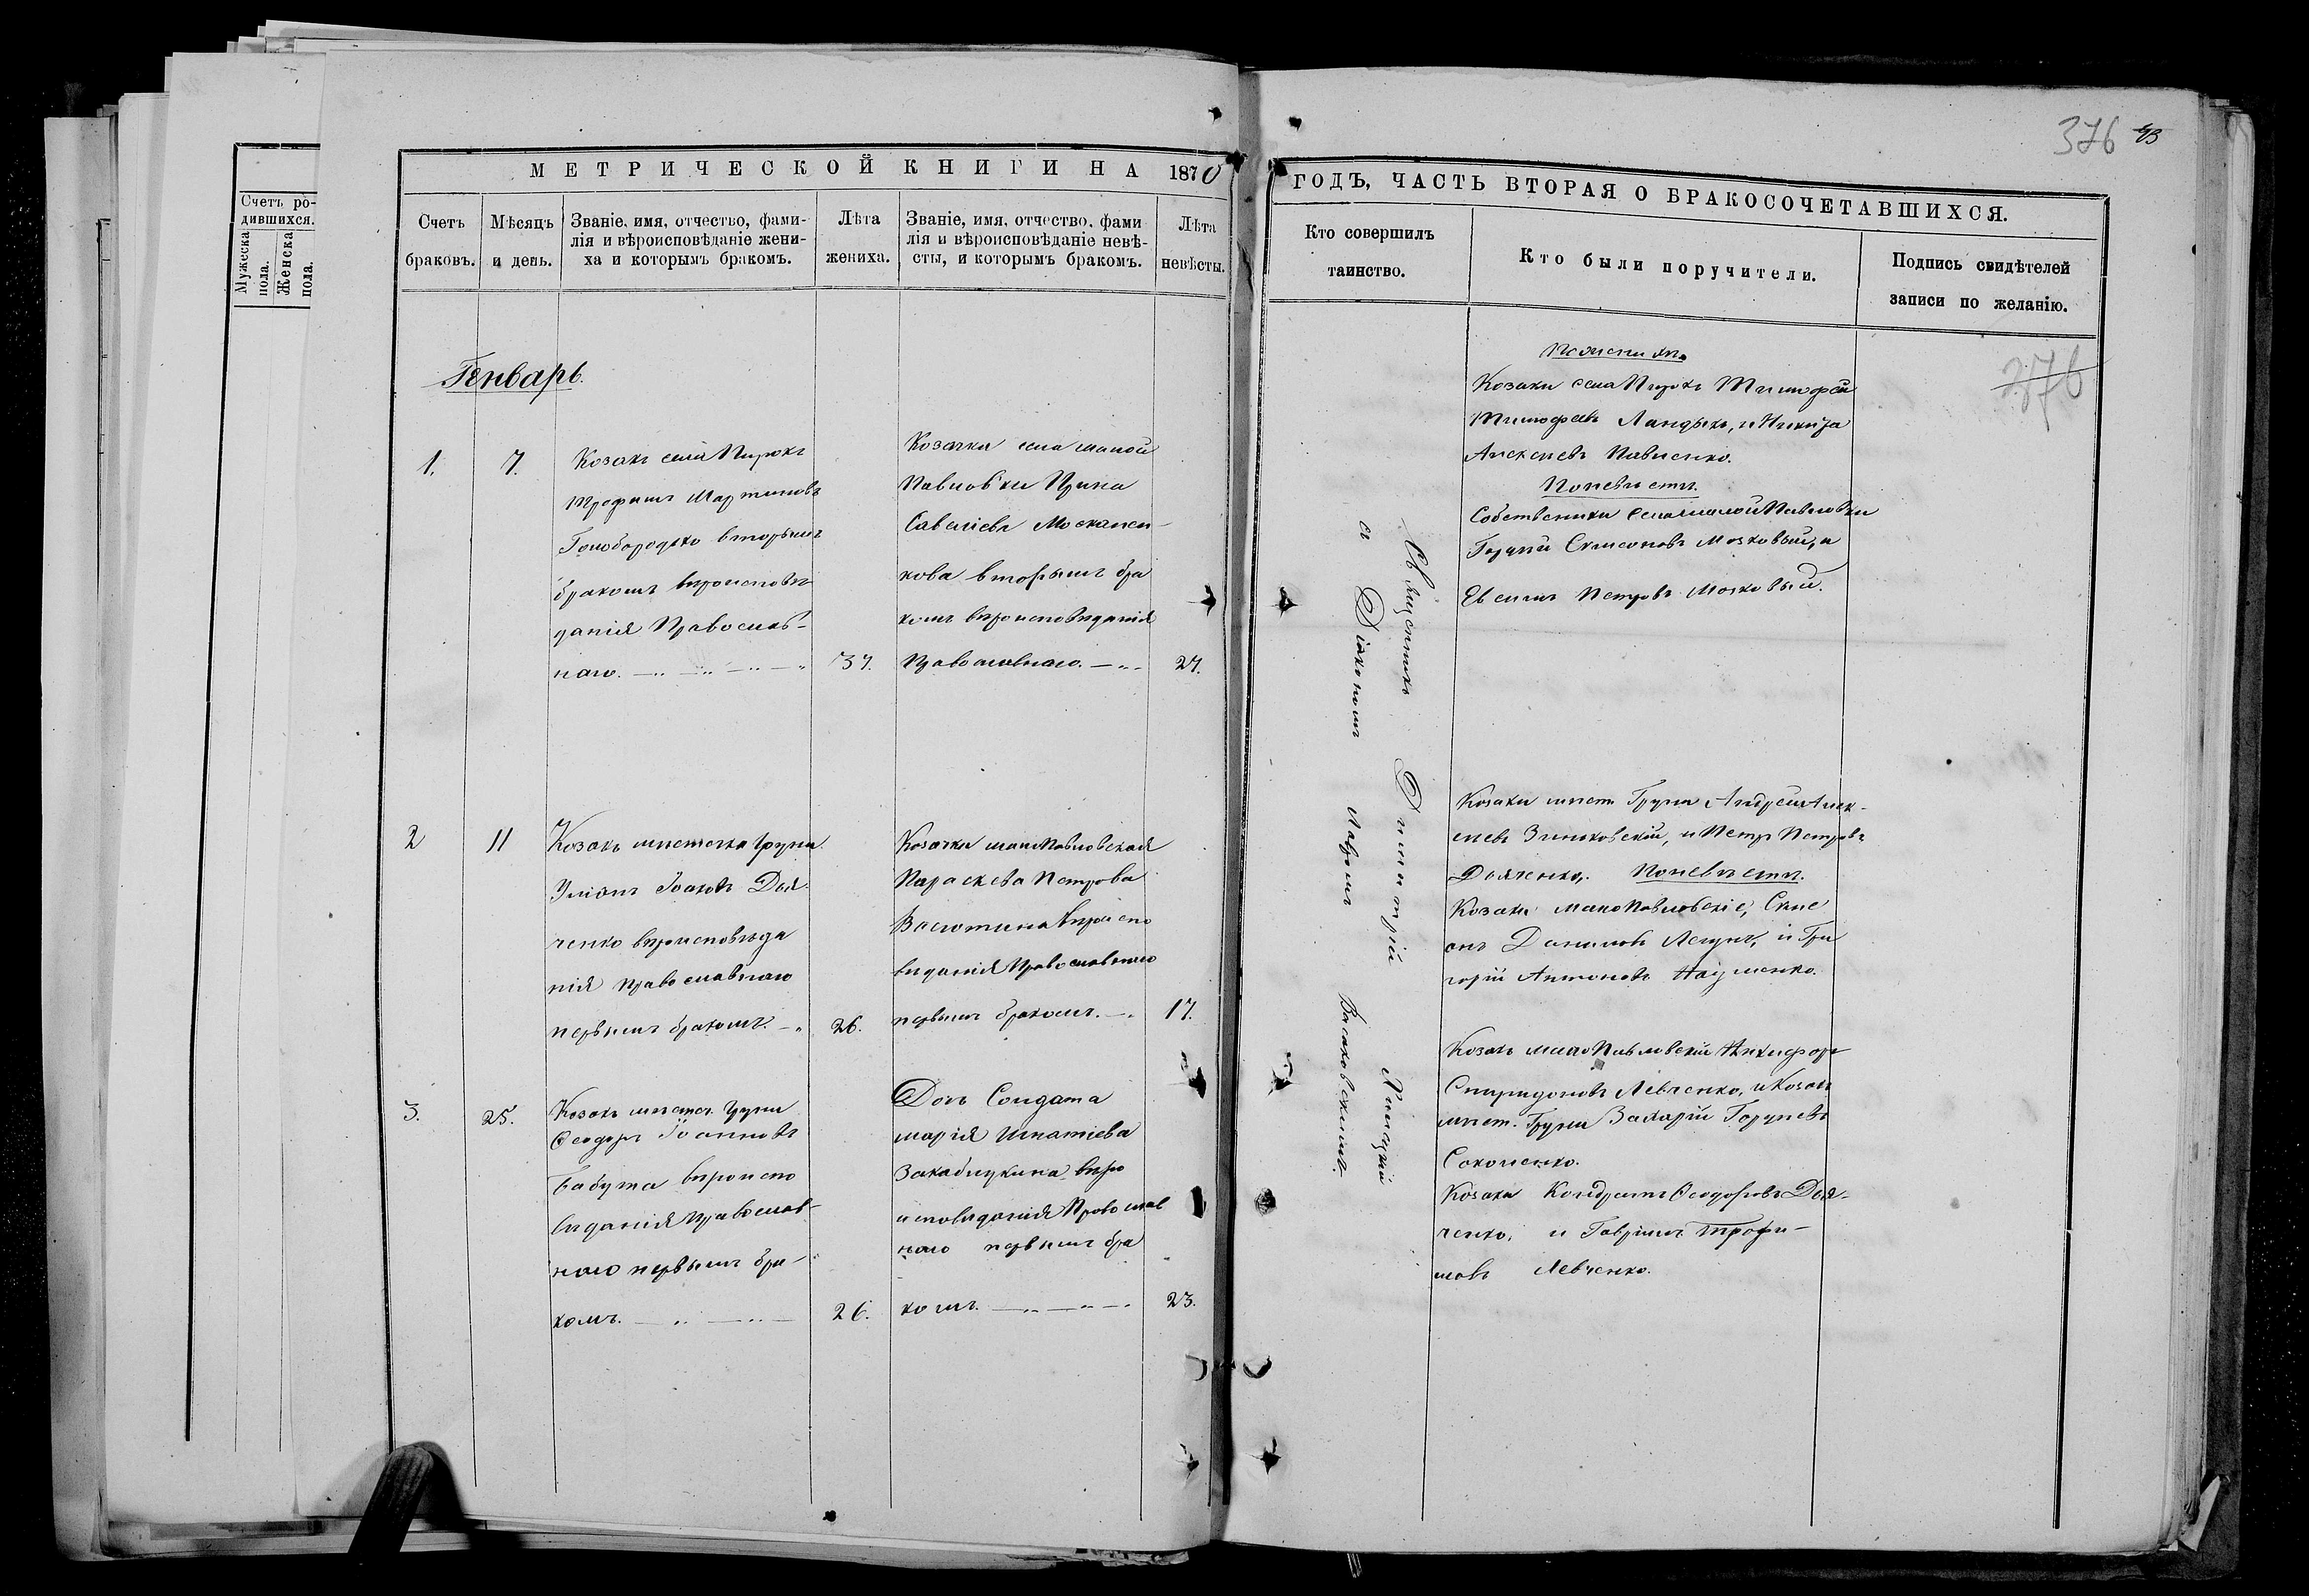 376 43
Счетъ ро-
дившихся.
Мужеска
пола.
Женска
пола.
МЕТРИЧЕСКОЙ КНИГИ НА 1870
ГОДЪ, ЧАСТЬ ВТОРАЯ О БРАКОСОЧЕТАВШИХСЯ.
Счетъ
браковъ.
Мѣсяцъ
и день.
Званіе, имя, отчество, фами-
лія и вѣроисповѣданіе жени-
ха и которымъ бракомъ.
Лѣта
жениха.
Званіе, имя, отчество, фами
лія и вѣроисповѣданіе невѣ-
сты, и которымъ бракомъ.
Лѣта
невѣсты.
Кто совершилъ
таинство.
Кто были поручители.
Подпись свидѣтелей
записи по желанію.
Генварь.
1.
7.
Козакъ села Пирокъ
Трофимъ Мартиновъ
Голобородько вторымъ
бракомъ вѣроисповѣ
данія Православ-
наго.
37.
Козачка села малой
Павловки Ирина
Савеліева Москален-
кова вторымъ бра
комъ вѣроисповѣданія
Православнаго.
27.
Священникъ Димитрій
съ Діакономъ
По женихѣ
Козаки села Пирокъ Тимофей
Тимофеевъ Ландыкъ, и Никита
Алексѣевъ Павленко.
По невѣстѣ.
Собственники села малой Павловки
Семеновъ Мозковый, и
Петровъ Мозковый.
376
2
11
Козакъ мѣстечка Груни
Іоаковъ Дья-
ченко вѣроисповѣда
нія православнаго
первымъ бракомъ.
26.
Козачка малопавловская
Параскева Петрова
вѣроиспо
вѣданія Православнаго
первымъ бракомъ.
17.
Козаки мѣст. Груни Андрей Алек-
сѣевъ Зиньковскій, и Петръ Петровъ
Дьяченко. По невѣстѣ.
Козаки малопавловскіе, Симе
онъ Даниловъ и Гри
горій Антоновъ Науменко.
3.
25.
Козакъ мѣстеч. Груни
Ѳеодоръ Іоанновъ
Бабута вѣроиспо
вѣданія православ-
наго первымъ бра-
комъ.
26.
Дочь Солдата
Марія Игнатіева
вѣро
исповѣданія Православ
наго первымъ бра
комъ.
23.
Козакъ малопавловскій Никифоръ
Спиридоновъ Левченко, и Козакъ
мѣст. Груни Захарій
Соколенко.
Козаки Кондратъ Ѳеодоровъ Дья-
ченко, и Гавріилъ Трофи-
мовъ Левченко.